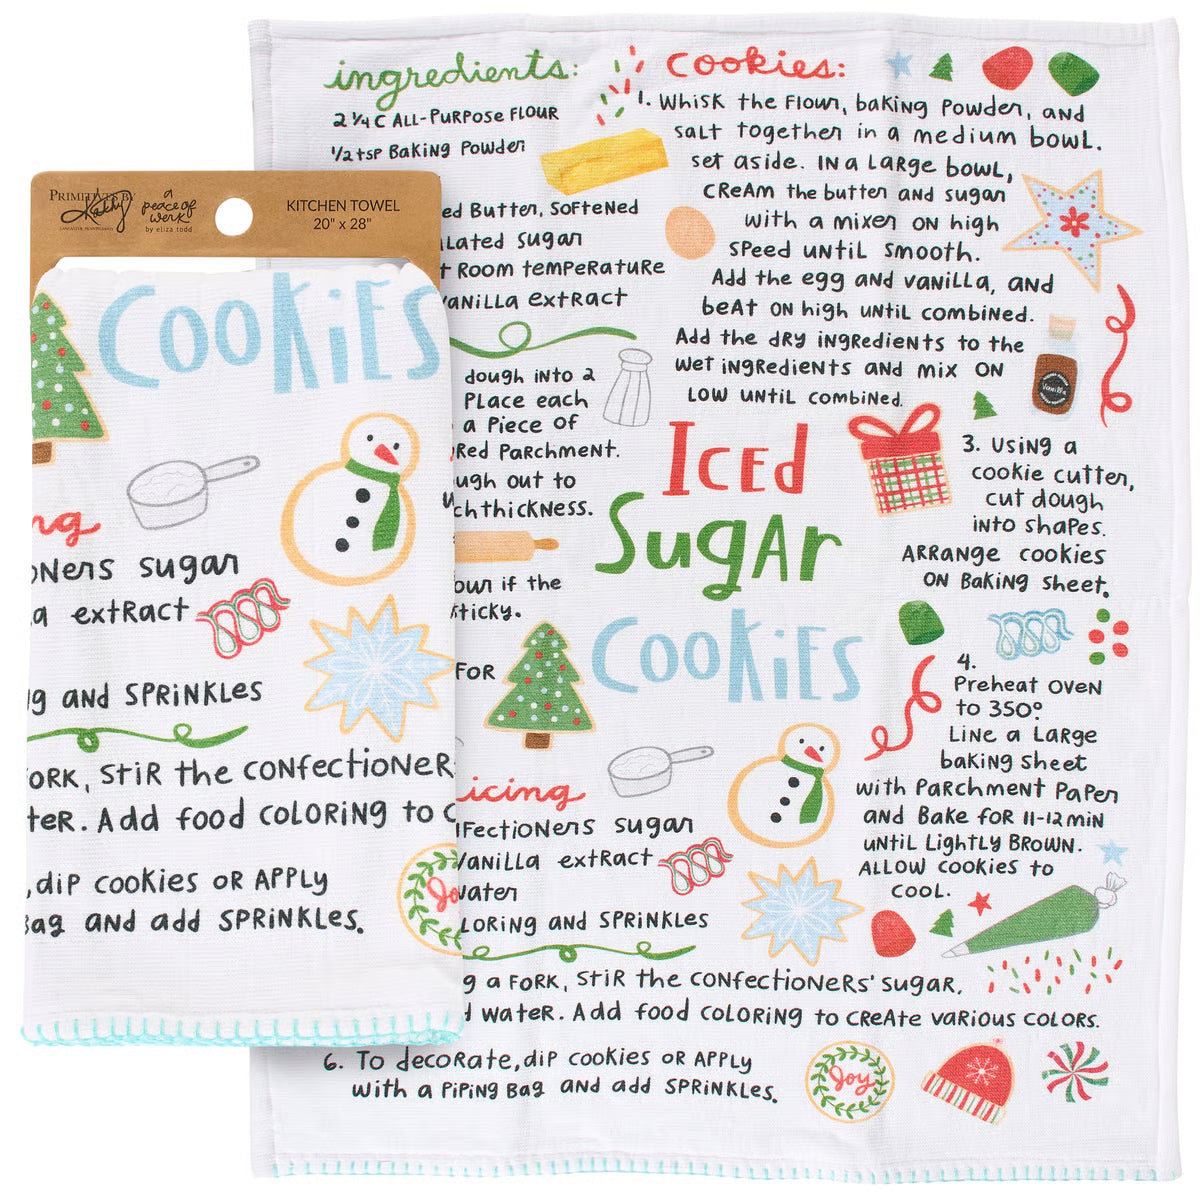 PRIMITIVES BY
Kathy
LANCASTER, PENNSYLVANIA
a
peace of
werk
by eliza todd
KITCHEN TOWEL
20" x 28"
COOKiES
ng
oners sugar
a extract
g AND SPRiNKLES
ORK, StiR the CONfectiONER
teR. Add food COLORiNG to C
, diP cookies OR APPLy
Bag and add SPRiNKLES.
Jo
ingredients:
2 1/4 C ALL-PURPOSE FLOUR
1/2 tSP Baking Powder
ed Butter, Softened
Lated Sugar
t Room temPeRatuRe
Vanilla extRact
dough into 2
PLace each
a Piece of
Red Parchment.
ugh out to
ch thickness.
our if the
sticky.
FOR
icing
fectioners sugar
Vanilla extRact
Water
LORiNG and SPRiNKLES
cookies:
1. Whisk the Flour, baking Powder, and
salt together in a medium bowl.
set aside. In a Large bowl,
CReam the butter and sugar
with a mixer ON high
SPeed until smooth.
Add the egg and vanilla, and
beAt ON high until combined.
Add the dRy ingRedients to the
wet ingRedients and mix ON
LOW until combined.
Vanilla
ICEd
SugAr
COOKiES
3. Using a
cookie cutter,
cut dough
into shapes.
ARRange cookies
ON Baking sheet.
4.
Preheat oven
to 350°
Line a Large
baking sheet
with Parchment Paper
and Bake for 11-12 min
until Lightly Brown.
Allow cookies to
cool.
g a FORK, StiR the CONfectiONeRs' sugar,
d wateR. Add food COLORiNG to CReAte vaRious COLORS.
6. To decoRate, diP cookies OR APPLy
with a PiPiNG Bag and add SPRiNKLES.
Joy